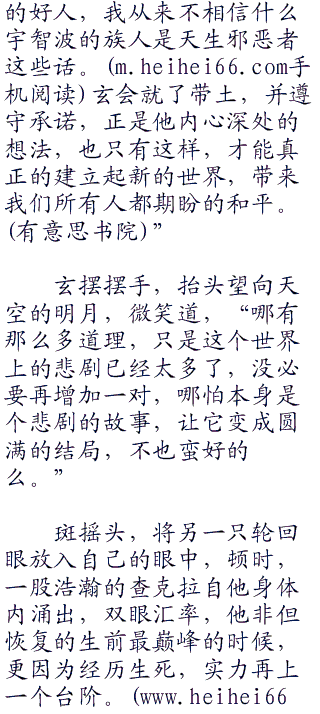 的好人，我从来不相信什么
宇智波的族人是天生邪恶者
这些话。(m.heihei66.com手
机阅读)玄会就了带土，并遵
守承诺，正是他内心深处的
想法，也只有这样，才能真
正的建立起新的世界，带来
我们所有人都期盼的和平。
(有意思书院)”
玄摆摆手，抬头望向天
空的明月，微笑道，“哪有
那么多道理，只是这个世界
上的悲剧已经太多了，没必
要再增加一对，哪怕本身是
个悲剧的故事，让它变成圆
满的结局，不也蛮好的
么。”
斑摇头，将另一只轮回
眼放入自己的眼中，顿时，
一股浩瀚的查克拉自他身体
内涌出，双眼汇率，他非但
恢复的生前最巅峰的时候，
更因为经历生死，实力再上
一个台阶。(www.heihei66